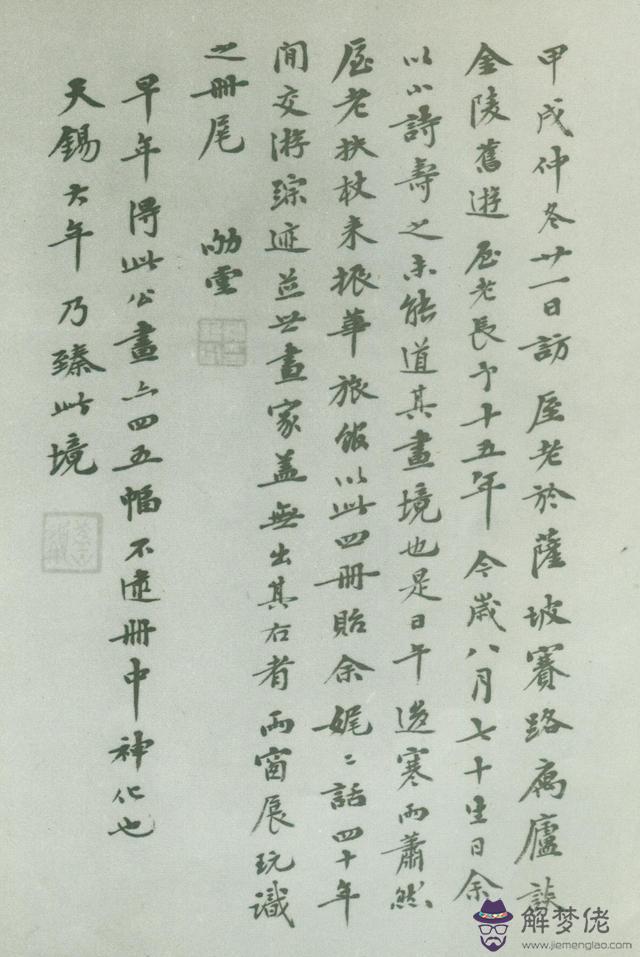 甲戌仲冬廿一日訪厔老於薩坡賽路寓廬談
金陵舊遊厔老長予十五年今歲八月七十生日余
以小詩壽之未能道其畫境也是日午後寒雨蕭然
厔老扶杖來振華旅館以此四冊貽余娓〻話四十年
間交游踪迹並世畫家蓋無出其右者雨窗展玩識
之冊尾
早年得此公畫亦四五幅不逮冊中神化也
天錫大年乃臻此境
解梦佬
www.jiemenglao.com